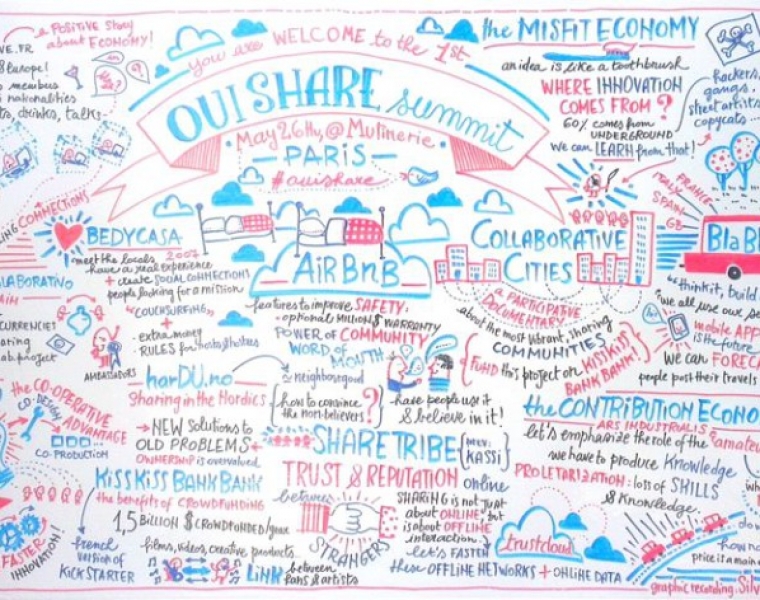 a POSITIVE Story
about ECONOMY!
VE.FR
Europe!
members
nationalities
drinks, talks
you are WELCOME to the 1st
OUISHARE summit
May 26th, @ Mutinerie
PARIS
#ouishare
the MISFIT ECONOMY
an idea is like a toothbrush
WHERE INNOVATION
COMES FROM?
60% comes from
UNDERGROUND
We can LEARN from that!
hackers
gangs
street artists
copycats
CONNECTIONS
BEDYCASA
2007
meet the locals
have a real experience
+ create SOCIAL CONNECTIONS
people looking for a mission
"COUCHSURFING"
+
extra money
RULES for hosts/hostees
AMBASSADORS
LABORATIVO
CURRENCIES
project
AiRBnB
features to improve SAFETY:
optional MILLION$ WARRANTY
POWER of COMMUNITY
WORD of
MOUTH
have people use it
& believe in it!
COLLABORATIVE
CITIES
a PARTICIPATIVE
DOCUMENTARY
about the most vibrant, sharing
COMMUNITIES
FUND this project on KISSKISS
BANKBANK!
FRANCE
ITALY
SPAIN
GB
BlaB
"think it, build
we all use our
mobile APP
is the future
We can FORECA
people post their travels
harDU.no
Sharing in the Nordics
neighborgood
how to convince
the non-believers?
→ NEW Solutions to
OLD PROBLEMS ←
OWNERSHIP is overvalued
the CO-OPERATIVE
ADVANTAGE
CO-DESIGN
CO-PRODUCTION
FASTER
INNOVATION!
SHARETRIBE
{prev: KASSI}
TRUST & REPUTATION online
between
STRANGERS
SHARING is not JUST
about ONLINE but
is about OFFLINE
interaction
let's FASTEN
these OFFLINE NETWORKS + ONLINE DATA
trustcloud
KissKissBankBank
the benefits of CROWDFUNDING
1,5 BILLION $ CROWDFUNDED/year
french
version of
KICKSTARTER
films, videos, creative products
LINK between
fans & artists
the CONTRIBUTION ECONO
ARS INDUSTRIALIS
let's emphasize the role of the "amateu
we have to produce Knowledge
PROLETARIZATION: loss of SKILLS
& Knowledge.
price is a main
graphic recording. Silv